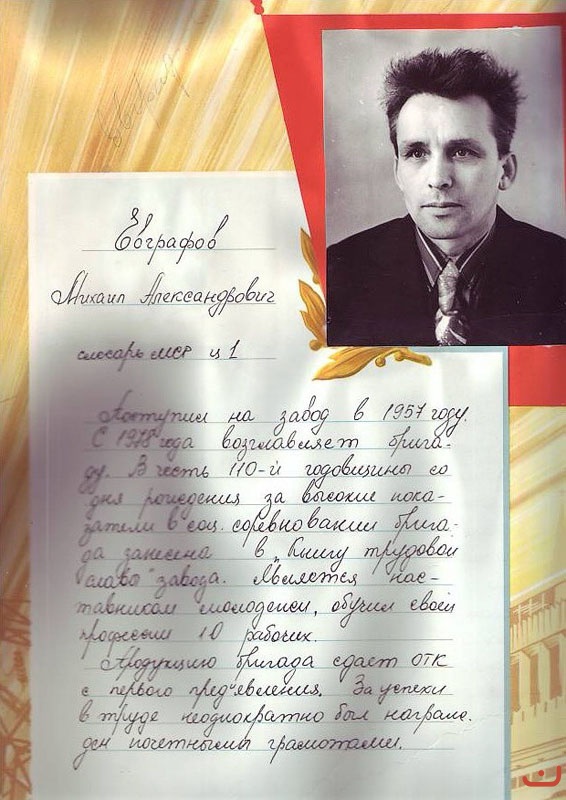 Евграфов
Михаил Александрович
слесарь МСР ц 1
Поступил на завод в 1957 году.
С 1978 года возглавляет брига-
ду. В честь 110-й годовщины со
дня рождения за высокие пока-
затели в соц. соревновании брига-
да занесена в „Книгу трудовой
славы" завода. Является нас-
тавником молодежи, обучил своей
профессии 10 рабочих.
Продукцию бригада сдает ОТК
с первого предъявления. За успехи
в труде неоднократно был награж-
ден почетными грамотами.